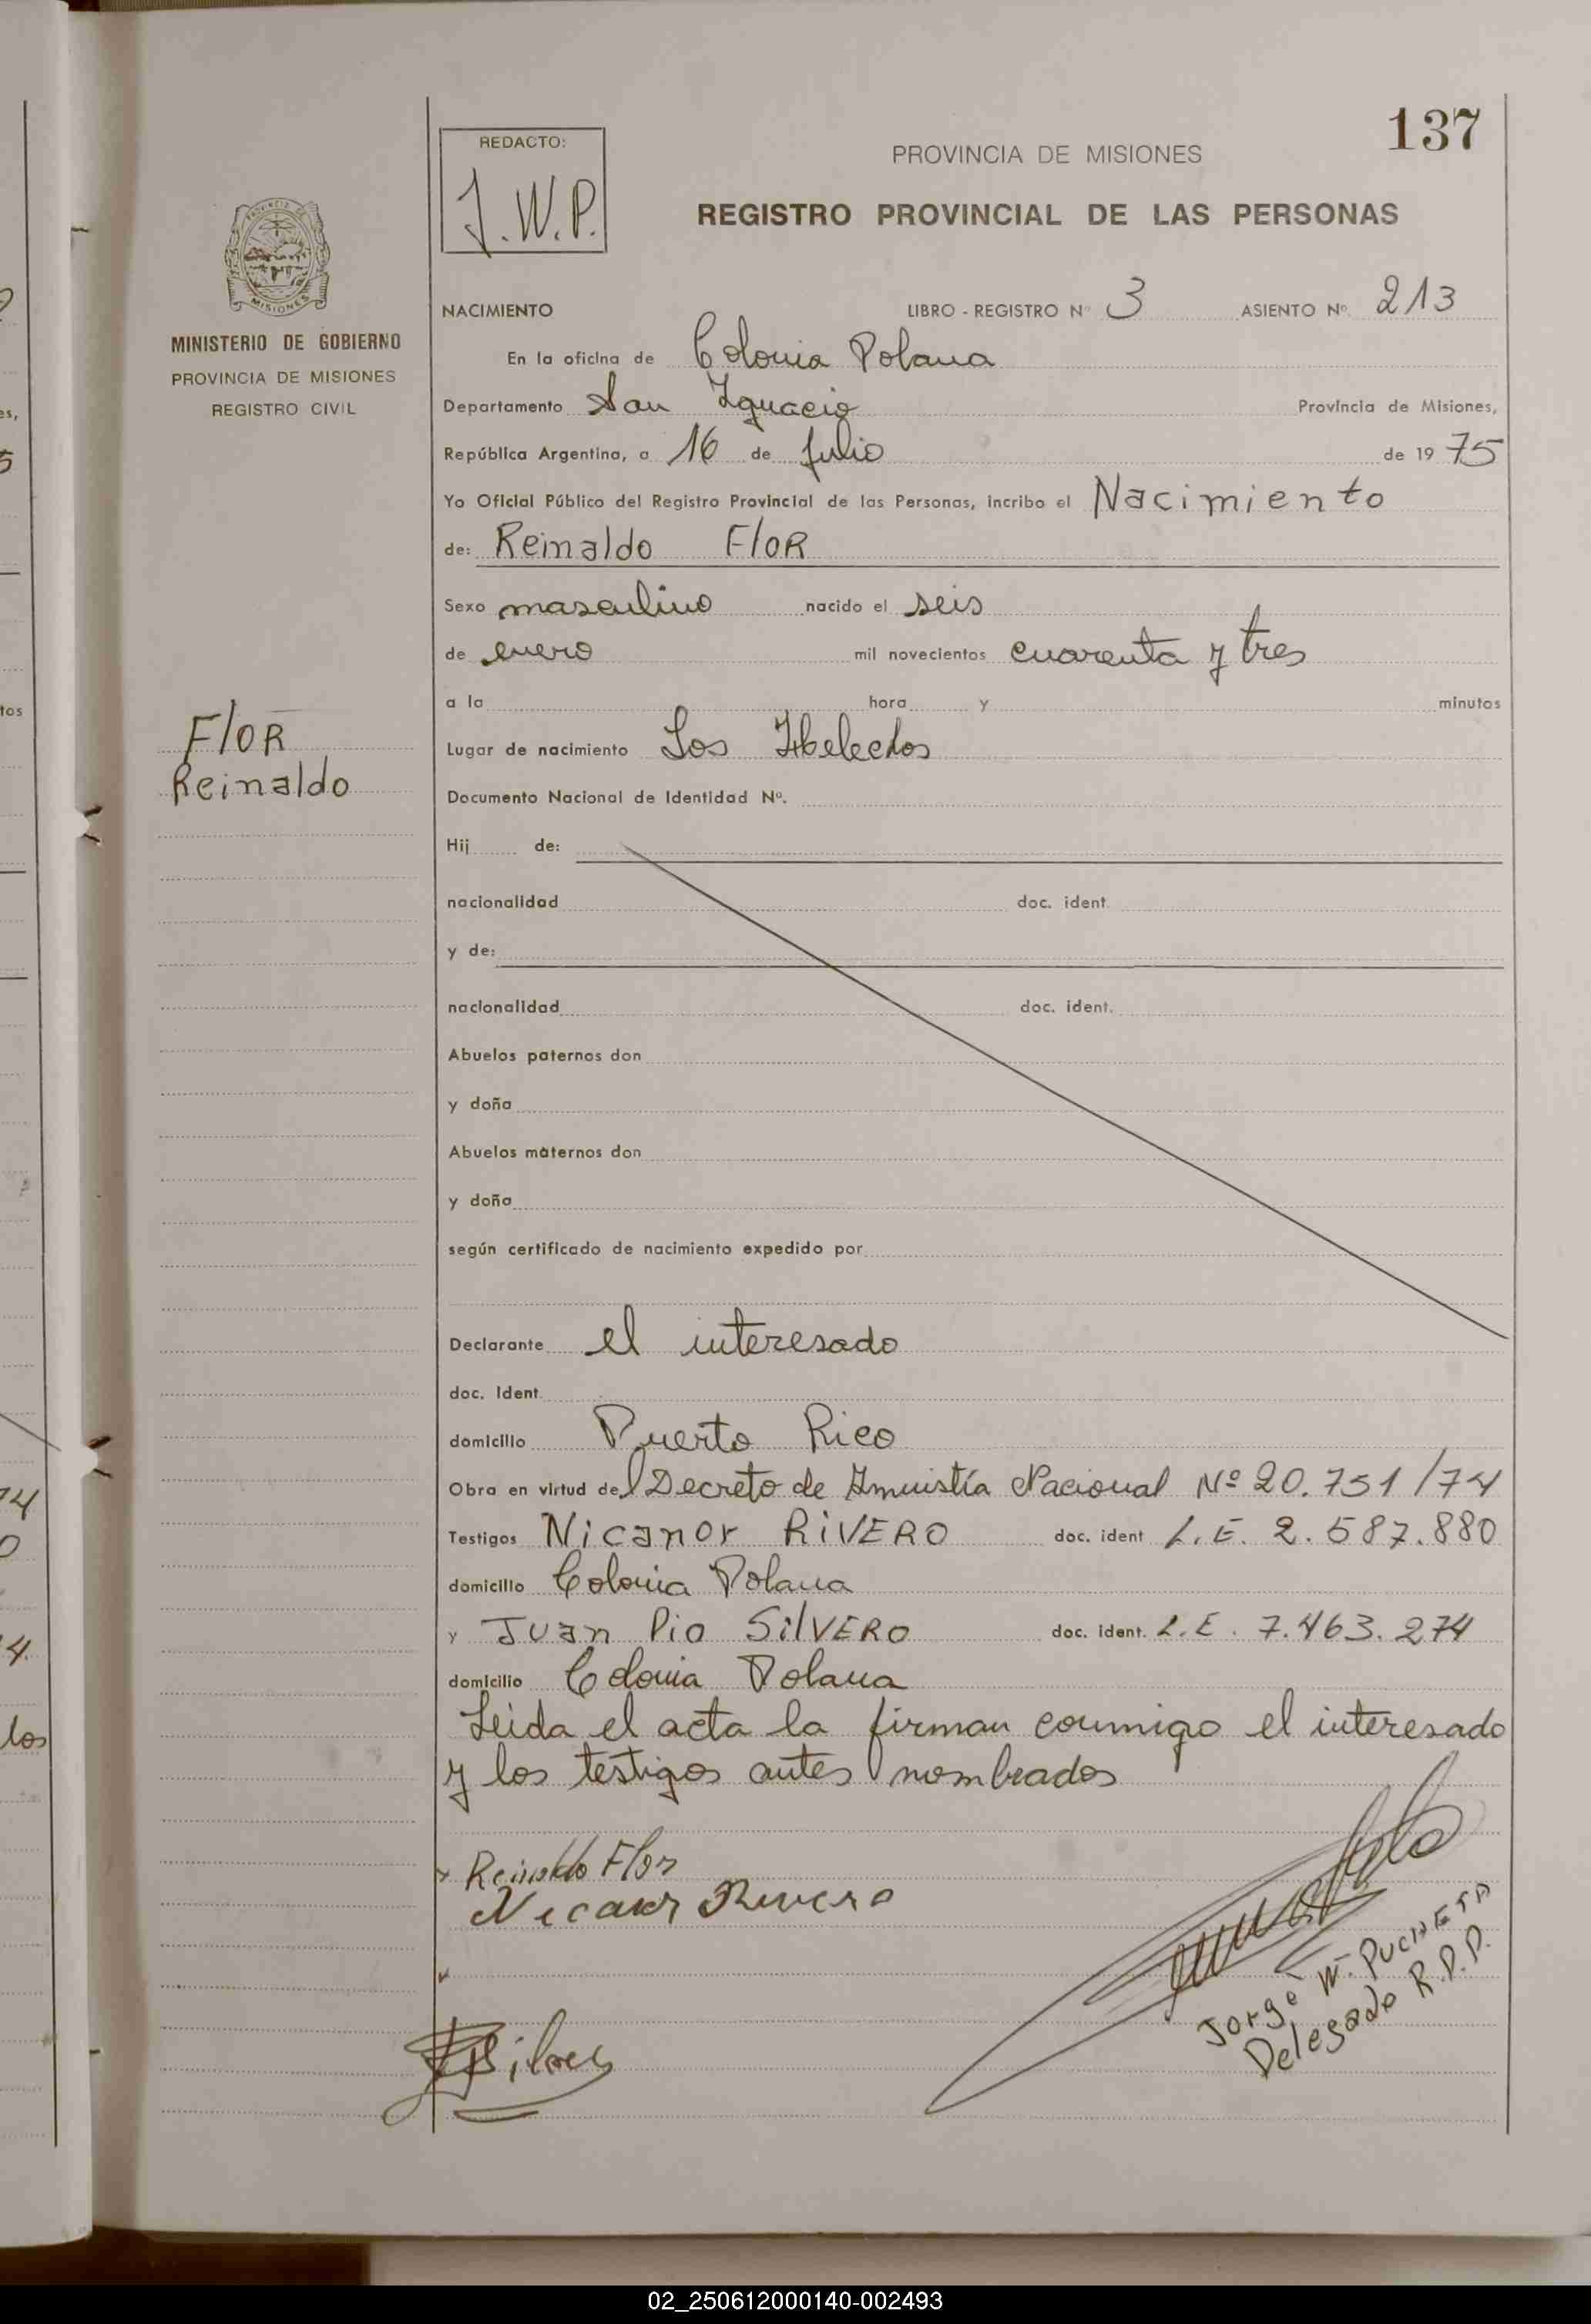 137
REDACTO:
J.W.P.
PROVINCIA DE MISIONES
REGISTRO PROVINCIAL DE LAS PERSONAS
MISIONES
MINISTERIO DE GOBIERNO
PROVINCIA DE MISIONES
REGISTRO CIVIL
NACIMIENTO LIBRO - REGISTRO Nº 3 ASIENTO Nº 213
En la oficina de Colonia Polana
Departamento San Ignacio Provincia de Misiones,
República Argentina, a 16 de Julio de 19 75
Yo Oficial Público del Registro Provincial de las Personas, incribo el Nacimiento
de: Reinaldo FloR
Sexo masculino nacido el seis
de enero mil novecientos cuarenta y tres
a la hora y minutos
FloR
Reinaldo
Lugar de nacimiento Los Helechos
Documento Nacional de Identidad Nº.
Hij de:
nacionalidad doc. ident.
y de:
nacionalidad doc. ident.
Abuelos paternos don
y doña
Abuelos maternos don
y doña
según certificado de nacimiento expedido por
Declarante el interesado
doc. ident.
domicilio Puerto Rico
Obra en virtud del Decreto de Amnistía Nacional Nº 20.751/74
Testigos Nicanor RiVERO doc. ident L.E. 2.587.880
domicilio Colonia Polana
y Juan Pio SilVERO doc. ident. L.E. 7.463.274
domicilio Colonia Polana
Leida el acta la firman conmigo el interesado
y los testigos antes nombrados
Reinaldo Flor
Nicanor Rivero
Jorge W. PUCHETA
Delegado R.P.P.
02_250612000140-002493